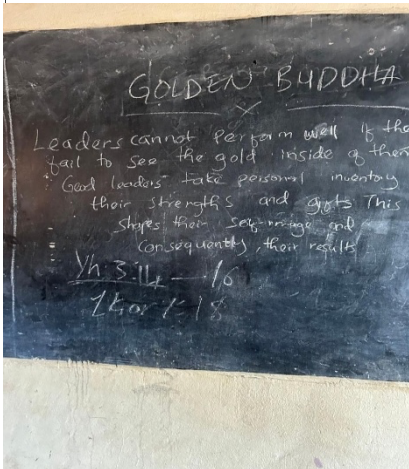 GOLDEN BUDDHA
Leaders cannot perform well if the
fail to see the gold inside of them
∴ Good leaders take personal inventory
their strengths and gifts This
shapes their self-image and
consequently, their results
Yh 3:14 – 16
1 Kor 1:18